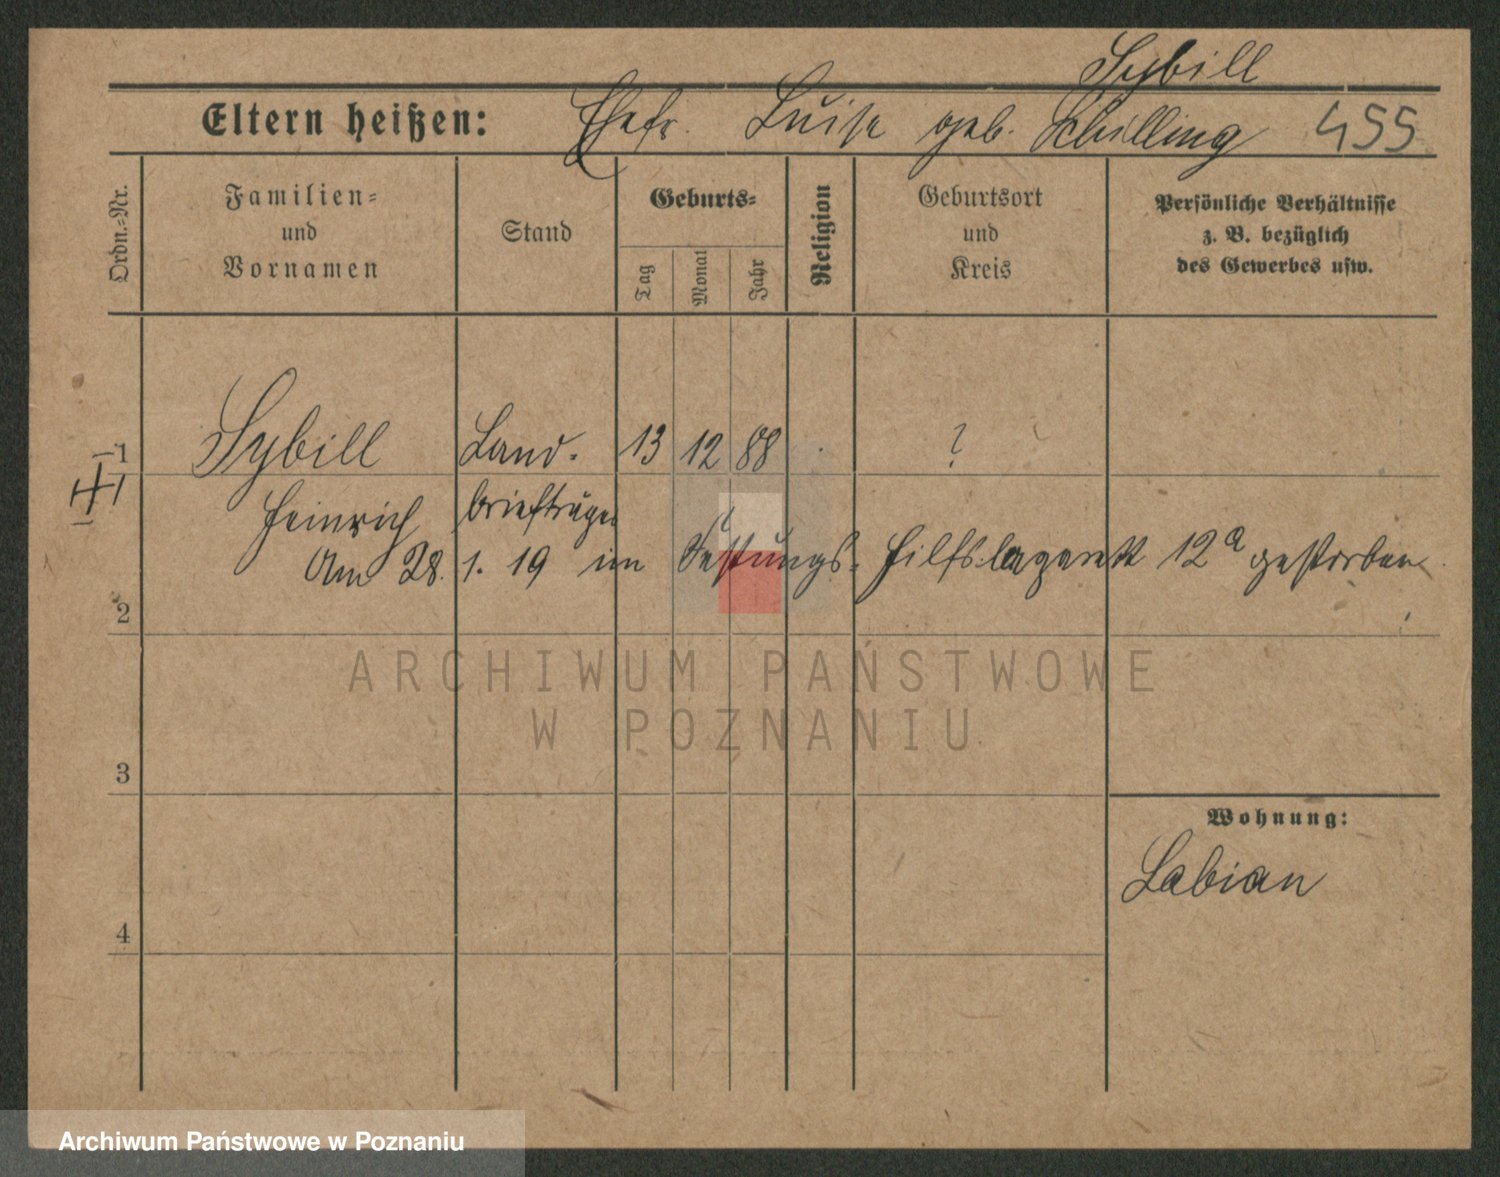 Sybill
Eltern heißen: Ehefr. Luise geb. Schilling 455
Ordn.=Nr.
Familien=
und
Vornamen
Stand
Geburts=
Tag
Monat
Jahr
Religion
Geburtsort
und
Kreis
Persönliche Verhältnisse
z. B. bezüglich
des Gewerbes usw.
1 Sybill Land. 13 12 88 ?
Heinrich briefträger
Am 28. 1. 19 im Festungs- Hilfslazarett 12a gestorben.
2
3
4
Wohnung:
Labiau
ARCHIWUM PAŃSTWOWE
W POZNANIU
Archiwum Państwowe w Poznaniu